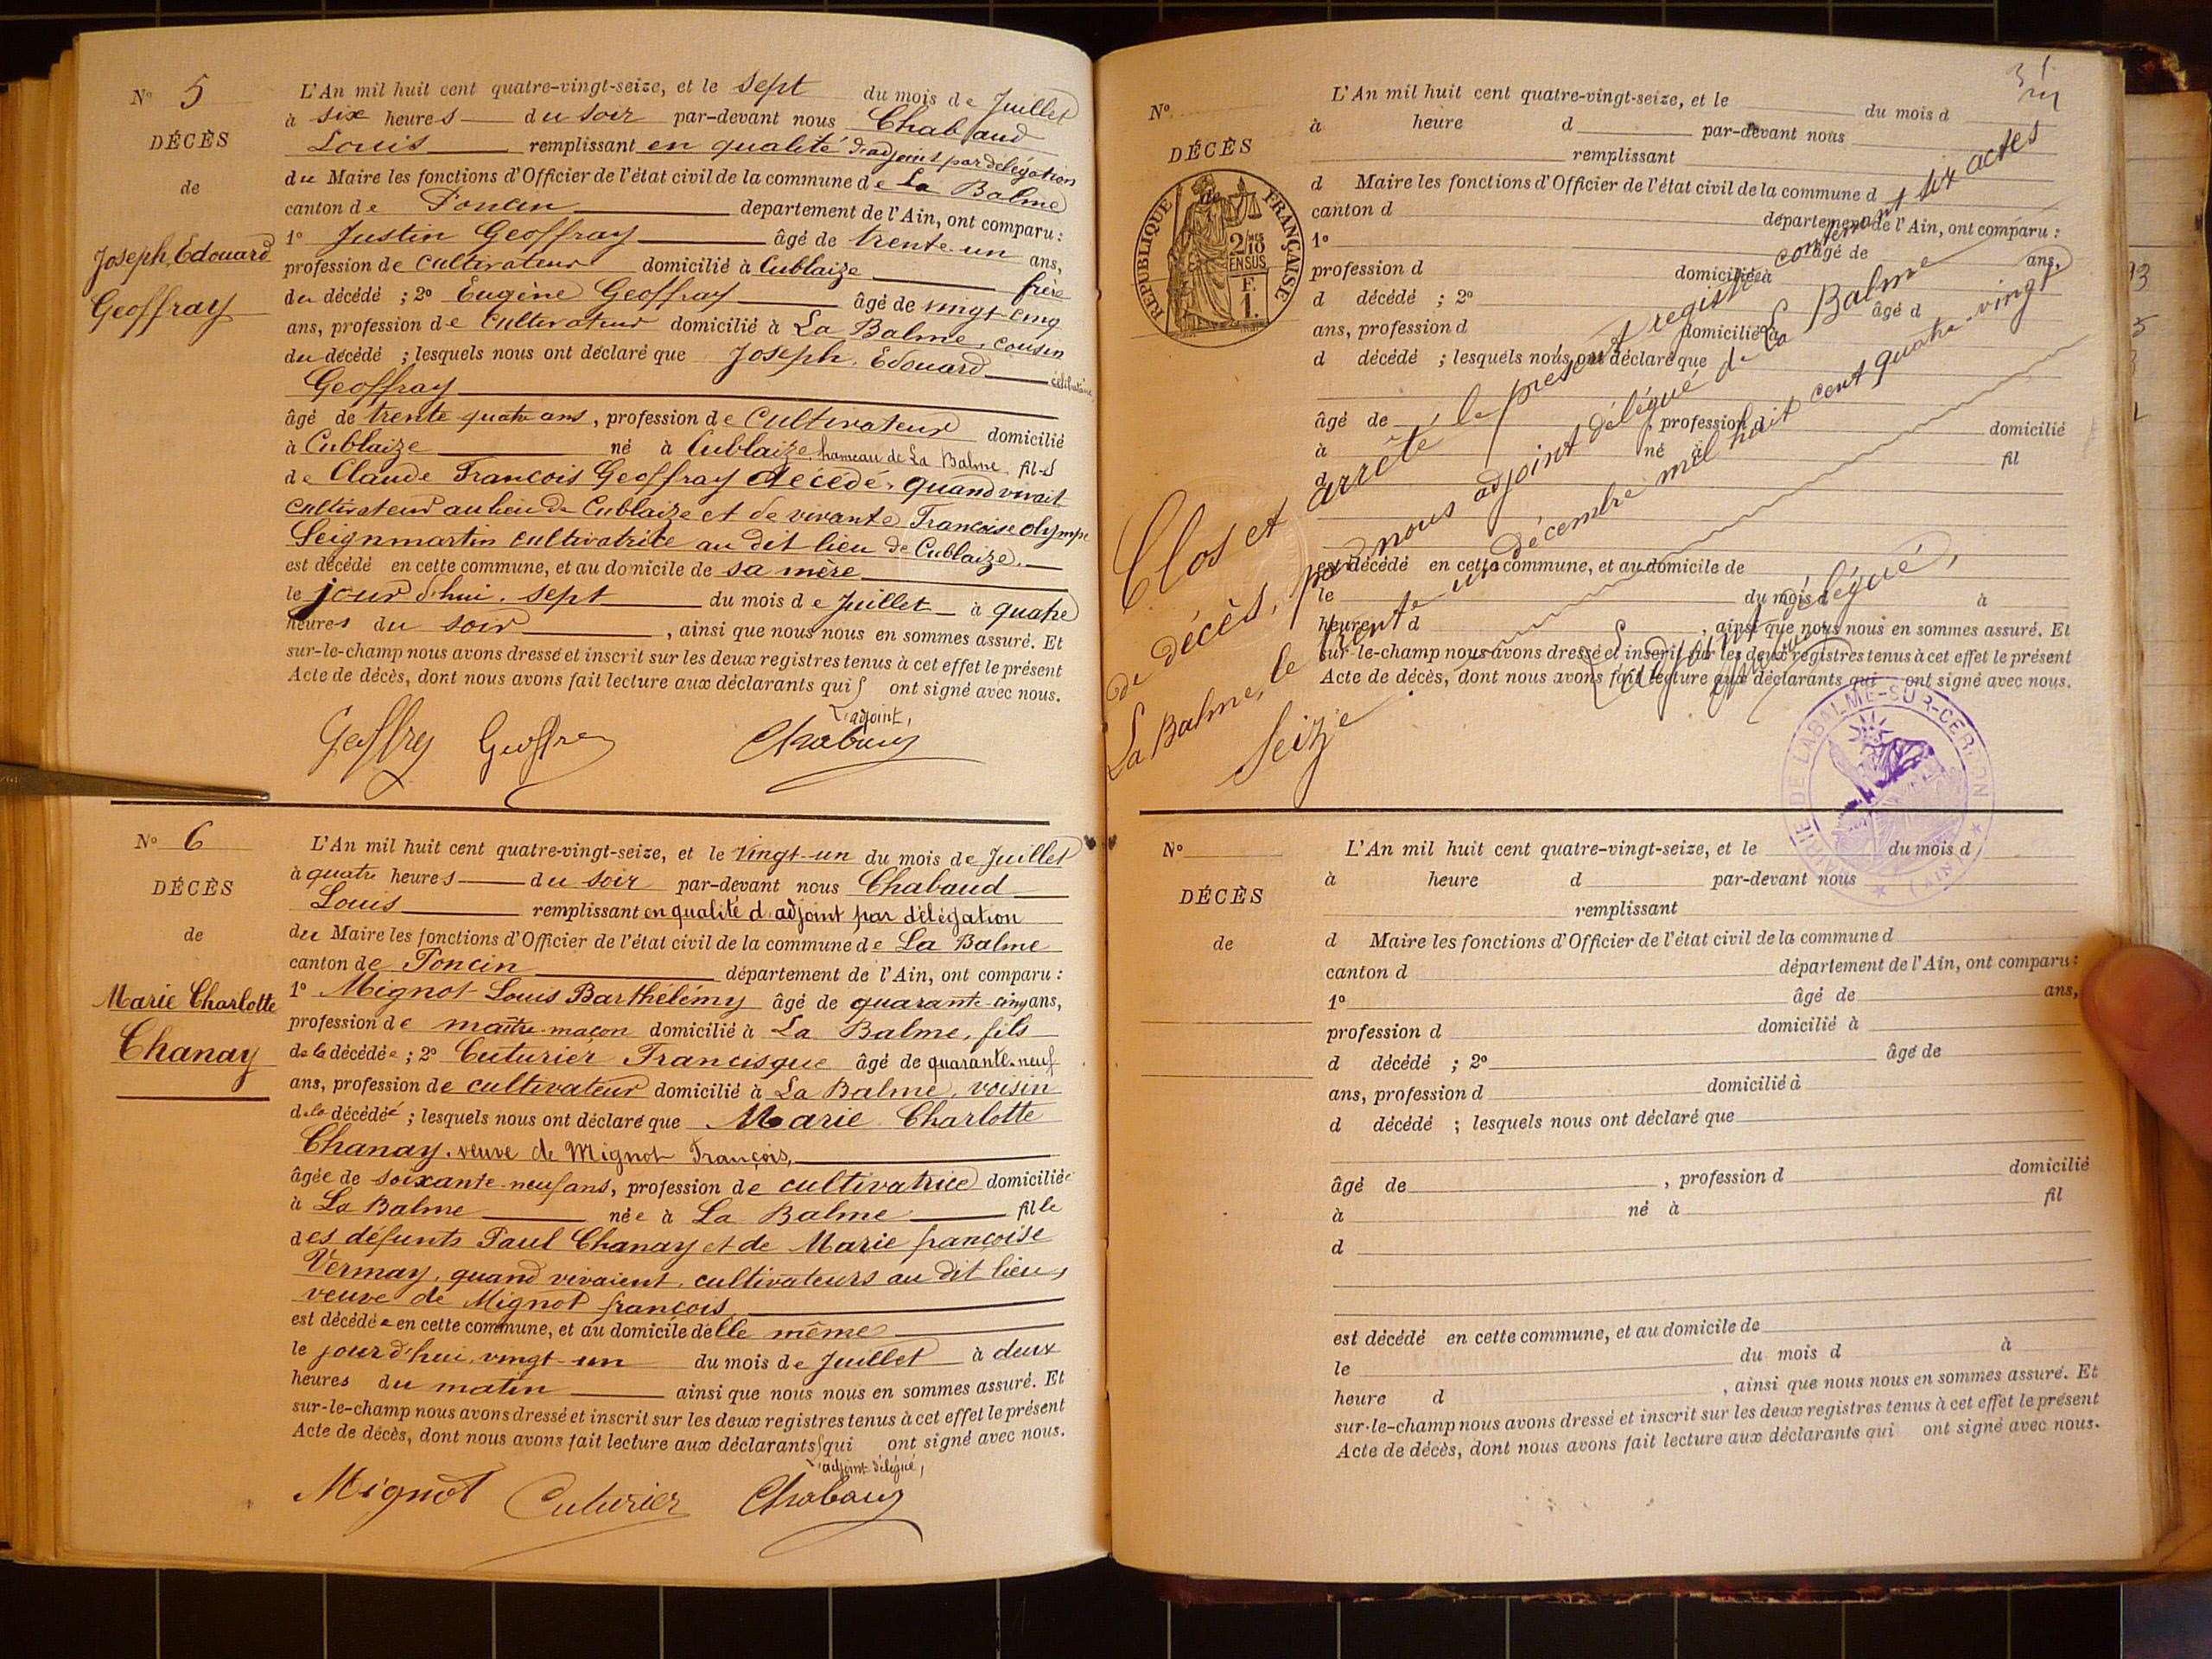 N° 5
DÉCÈS
de
Joseph, Edouard
Geoffray
L'An mil huit cent quatre-vingt-seize, et le sept du mois de Juillet
à six heures du soir par-devant nous Chabaud
Louis remplissant en qualité d'adjoint par délégation
du Maire les fonctions d'Officier de l'état civil de la commune de La Balme
canton de Poncin departement de l'Ain, ont comparu :
1° Justin Geoffray âgé de trente-un ans,
profession de cultivateur domicilié à Cublaize frère
du décédé ; 2° Eugène Geoffray âgé de vingt-cinq
ans, profession de cultivateur domicilié à La Balme, cousin
du décédé ; lesquels nous ont déclaré que Joseph, Edouard
Geoffray célibataire
âgé de trente quatre ans, profession de Cultivateur domicilié
à Cublaize né à Cublaize, hameau de La Balme fils
de Claude François Geoffray décédé, quand vivait
cultivateur au lieu de Cublaize et de vivante Francoise olympe
Seignmartin cultivatrice au dit lieu de Cublaize.
est décédé en cette commune, et au domicile de sa mère
le jour d'hui, sept du mois de Juillet à quatre
heures du soir, ainsi que nous nous en sommes assuré. Et
sur-le-champ nous avons dressé et inscrit sur les deux registres tenus à cet effet le présent
Acte de décès, dont nous avons fait lecture aux déclarants qui ont signé avec nous.
L'adjoint,
Geoffray Geoffray Chabaud
N° 6
DÉCÈS
de
Marie Charlotte
Chanay
L'An mil huit cent quatre-vingt-seize, et le vingt-un du mois de Juillet
à quatre heures du soir par-devant nous Chabaud
Louis remplissant en qualité d'adjoint par délégation
du Maire les fonctions d'Officier de l'état civil de la commune de La Balme
canton de Poncin département de l'Ain, ont comparu :
1° Mignot Louis Barthélémy âgé de quarante-cinq ans,
profession de maître-maçon domicilié à La Balme, fils
de la décédée ; 2° Cuturier Francisque âgé de quarante-neuf
ans, profession de cultivateur domicilié à La Balme, voisin
de la décédée ; lesquels nous ont déclaré que Marie Charlotte
Chanay, veuve de Mignot François,
âgée de soixante-neuf ans, profession de cultivatrice domiciliée
à La Balme née à La Balme fille
des défunts Paul Chanay et de Marie françoise
Vermay, quand vivaient, cultivateurs au dit lieu,
veuve de Mignot françois,
est décédée en cette commune, et au domicile delle même
le jour d'hui, vingt-un du mois de Juillet à deux
heures du matin ainsi que nous nous en sommes assuré. Et
sur-le-champ nous avons dressé et inscrit sur les deux registres tenus à cet effet le présent
Acte de décès, dont nous avons fait lecture aux déclarants qui ont signé avec nous.
L'adjoint délégué,
Mignot Cuturier Chabaud
N°
DÉCÈS
de
RÉPUBLIQUE FRANÇAISE
2/10 EN SUS
F.
1.
L'An mil huit cent quatre-vingt-seize, et le du mois d
à heure d par-devant nous
remplissant
d Maire les fonctions d'Officier de l'état civil de la commune d
canton d département de l'Ain, ont comparu :
1° âgé de ans,
profession d domicilié à
d décédé ; 2° âgé d
ans, profession d domicilié à
d décédé ; lesquels nous ont déclaré que
âgé de , profession d domicilié
à né à fil
d
est décédé en cette commune, et au domicile de
le du mois d à
heure d , ainsi que nous nous en sommes assuré. Et
sur-le-champ nous avons dressé et inscrit sur les deux registres tenus à cet effet le présent
Acte de décès, dont nous avons fait lecture aux déclarants qui ont signé avec nous.
Clos et arrêté, le présent registre contenant six actes
de décès, par nous adjoint délégué de La Balme
La Balme, le trente un décembre mil huit cent quatre-vingt
Seize.
L'adjoint délégué,
MAIRIE DE LABALME-SUR-CERDON (AIN)
N°
DÉCÈS
de
L'An mil huit cent quatre-vingt-seize, et le du mois d
à heure d par-devant nous
remplissant
d Maire les fonctions d'Officier de l'état civil de la commune d
canton d département de l'Ain, ont comparu :
1° âgé de ans,
profession d domicilié à
d décédé ; 2° âgé de
ans, profession d domicilié à
d décédé ; lesquels nous ont déclaré que
âgé de , profession d domicilié
à né à fil
d
est décédé en cette commune, et au domicile de
le du mois d à
heure d , ainsi que nous nous en sommes assuré. Et
sur-le-champ nous avons dressé et inscrit sur les deux registres tenus à cet effet le présent
Acte de décès, dont nous avons fait lecture aux déclarants qui ont signé avec nous.